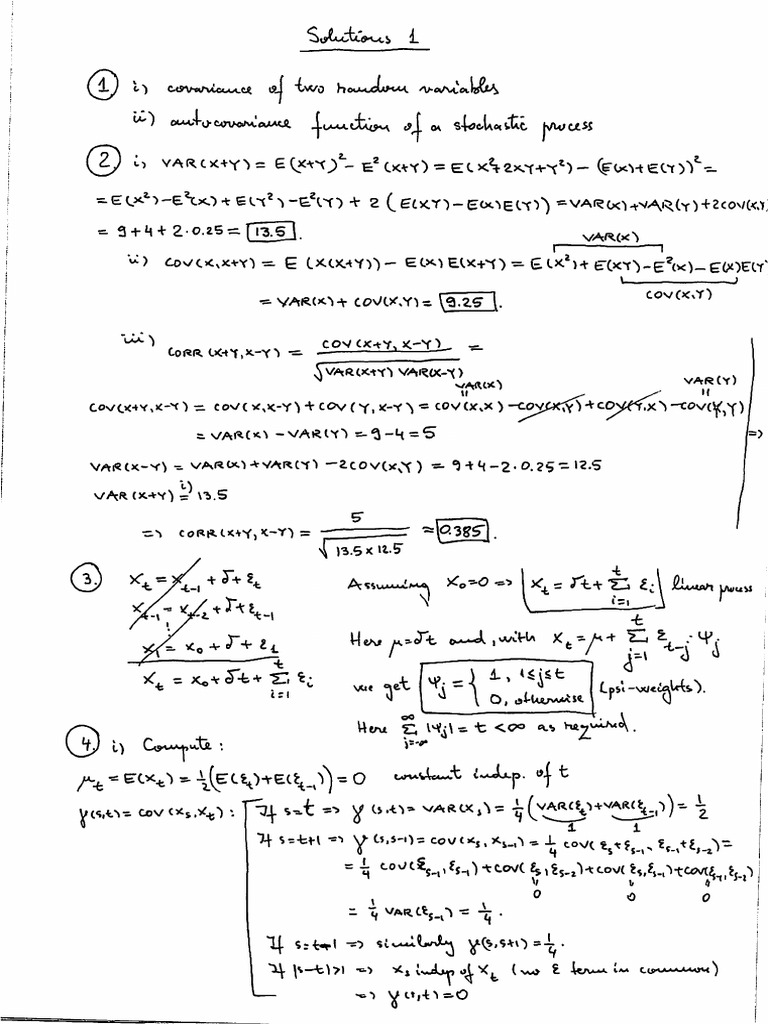 Solutions 1
① i) covariance of two random variables
ii) autocovariance function of a stochastic process
② i) VAR(X+Y) = E(X+Y)² − E²(X+Y) = E(X²+2XY+Y²) − (E(X)+E(Y))² =
= E(X²)−E²(X)+E(Y²)−E²(Y) + 2(E(XY)−E(X)E(Y)) = VAR(X)+VAR(Y)+2COV(X,Y)
= 9+4+2·0.25 = 13.5.
VAR(X)
ii) COV(X,X+Y) = E(X(X+Y)) − E(X)E(X+Y) = E(X²)+E(XY)−E²(X)−E(X)E(Y)
COV(X,Y)
= VAR(X)+COV(X,Y) = 9.25.
iii) CORR(X+Y,X−Y) = COV(X+Y,X−Y) / √VAR(X+Y)VAR(X−Y) =
VAR(X) VAR(Y)
COV(X+Y,X−Y) = COV(X,X−Y)+COV(Y,X−Y) = COV(X,X) −COV(X,Y)+COV(Y,X) −COV(Y,Y) =>
= VAR(X) −VAR(Y) = 9−4 = 5
VAR(X−Y) = VAR(X)+VAR(Y) −2COV(X,Y) = 9+4−2·0.25 = 12.5
VAR(X+Y) i)= 13.5
=> CORR(X+Y,X−Y) = 5 / √13.5×12.5 ≈ 0.385.
③. X_t = X_{t-1} + δ + ε_t
X_{t-1} = X_{t-2} + δ + ε_{t-1}
⋮
X_1 = X_0 + δ + ε_1
X_t = X_0 + δt + Σ_{i=1}^t ε_i
Assuming X_0=0 => X_t = δt + Σ_{i=1}^t ε_i linear process
Here μ=δt and, with X_t = μ + Σ_{j=1}^t ε_{t-j}·Ψ_j
we get Ψ_j = { 1, 1≤j≤t
0, otherwise (psi-weights).
Here Σ_{j=-∞}^∞ |Ψ_j| = t < ∞ as required.
④. i) Compute:
μ_t = E(X_t) = ½(E(ε_t)+E(ε_{t-1})) = 0 constant indep. of t
γ(s,t) = COV(X_s,X_t): If s=t => γ(s,t) = VAR(X_s) = ¼(VAR(ε_t)+VAR(ε_{t-1})) = ½
1 1
If s=t+1 => γ(s,s-1) = COV(X_s, X_{s-1}) = ¼ COV(ε_s+ε_{s-1}, ε_{s-1}+ε_{s-2}) =
= ¼ COV(ε_{s-1},ε_{s-1})+COV(ε_s,ε_{s-2})+COV(ε_s,ε_{s-1})+COV(ε_{s-1},ε_{s-2})
0 0 0
= ¼ VAR(ε_{s-1}) = ¼.
If s=t-1 => similarly γ(s,s+1) = ¼.
If |s−t|>1 => X_s indep of X_t (no ε term in common)
=> γ(s,t) = 0